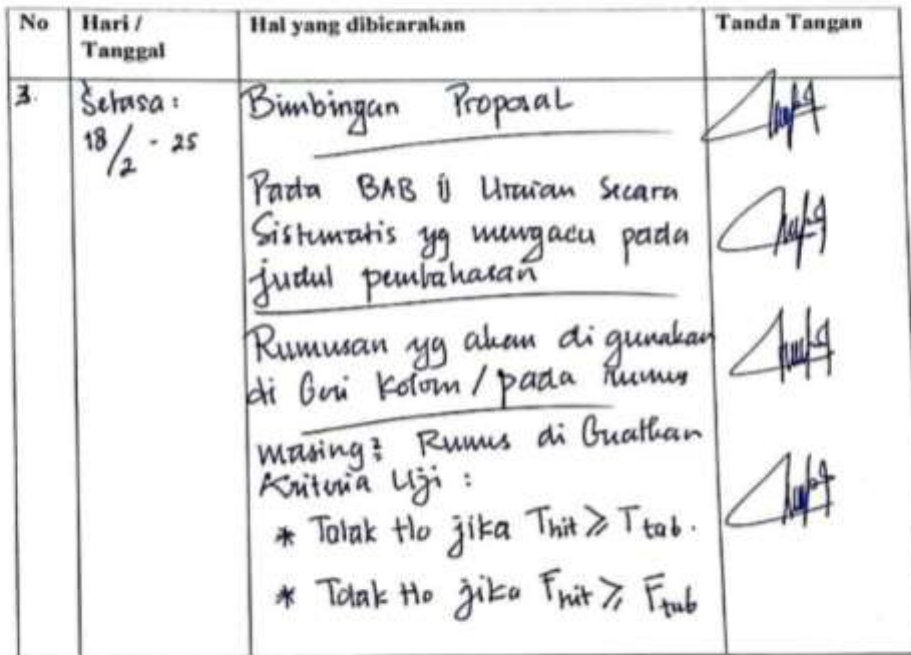 No
Hari /
Tanggal
Hal yang dibicarakan
Tanda Tangan
3.
Selasa :
18/2 - 25
Bimbingan Proposal
Pada BAB II Uraian Secara
Sistematis yg mengacu pada
judul pembahasan
Rumusan yg akan di gunakan
di beri Kolom / pada rumus
masing² Rumus di buatkan
Kriteria Uji :
* Tolak Ho jika Thit ≥ Ttab.
* Tolak Ho jika Fhit ≥ Ftab